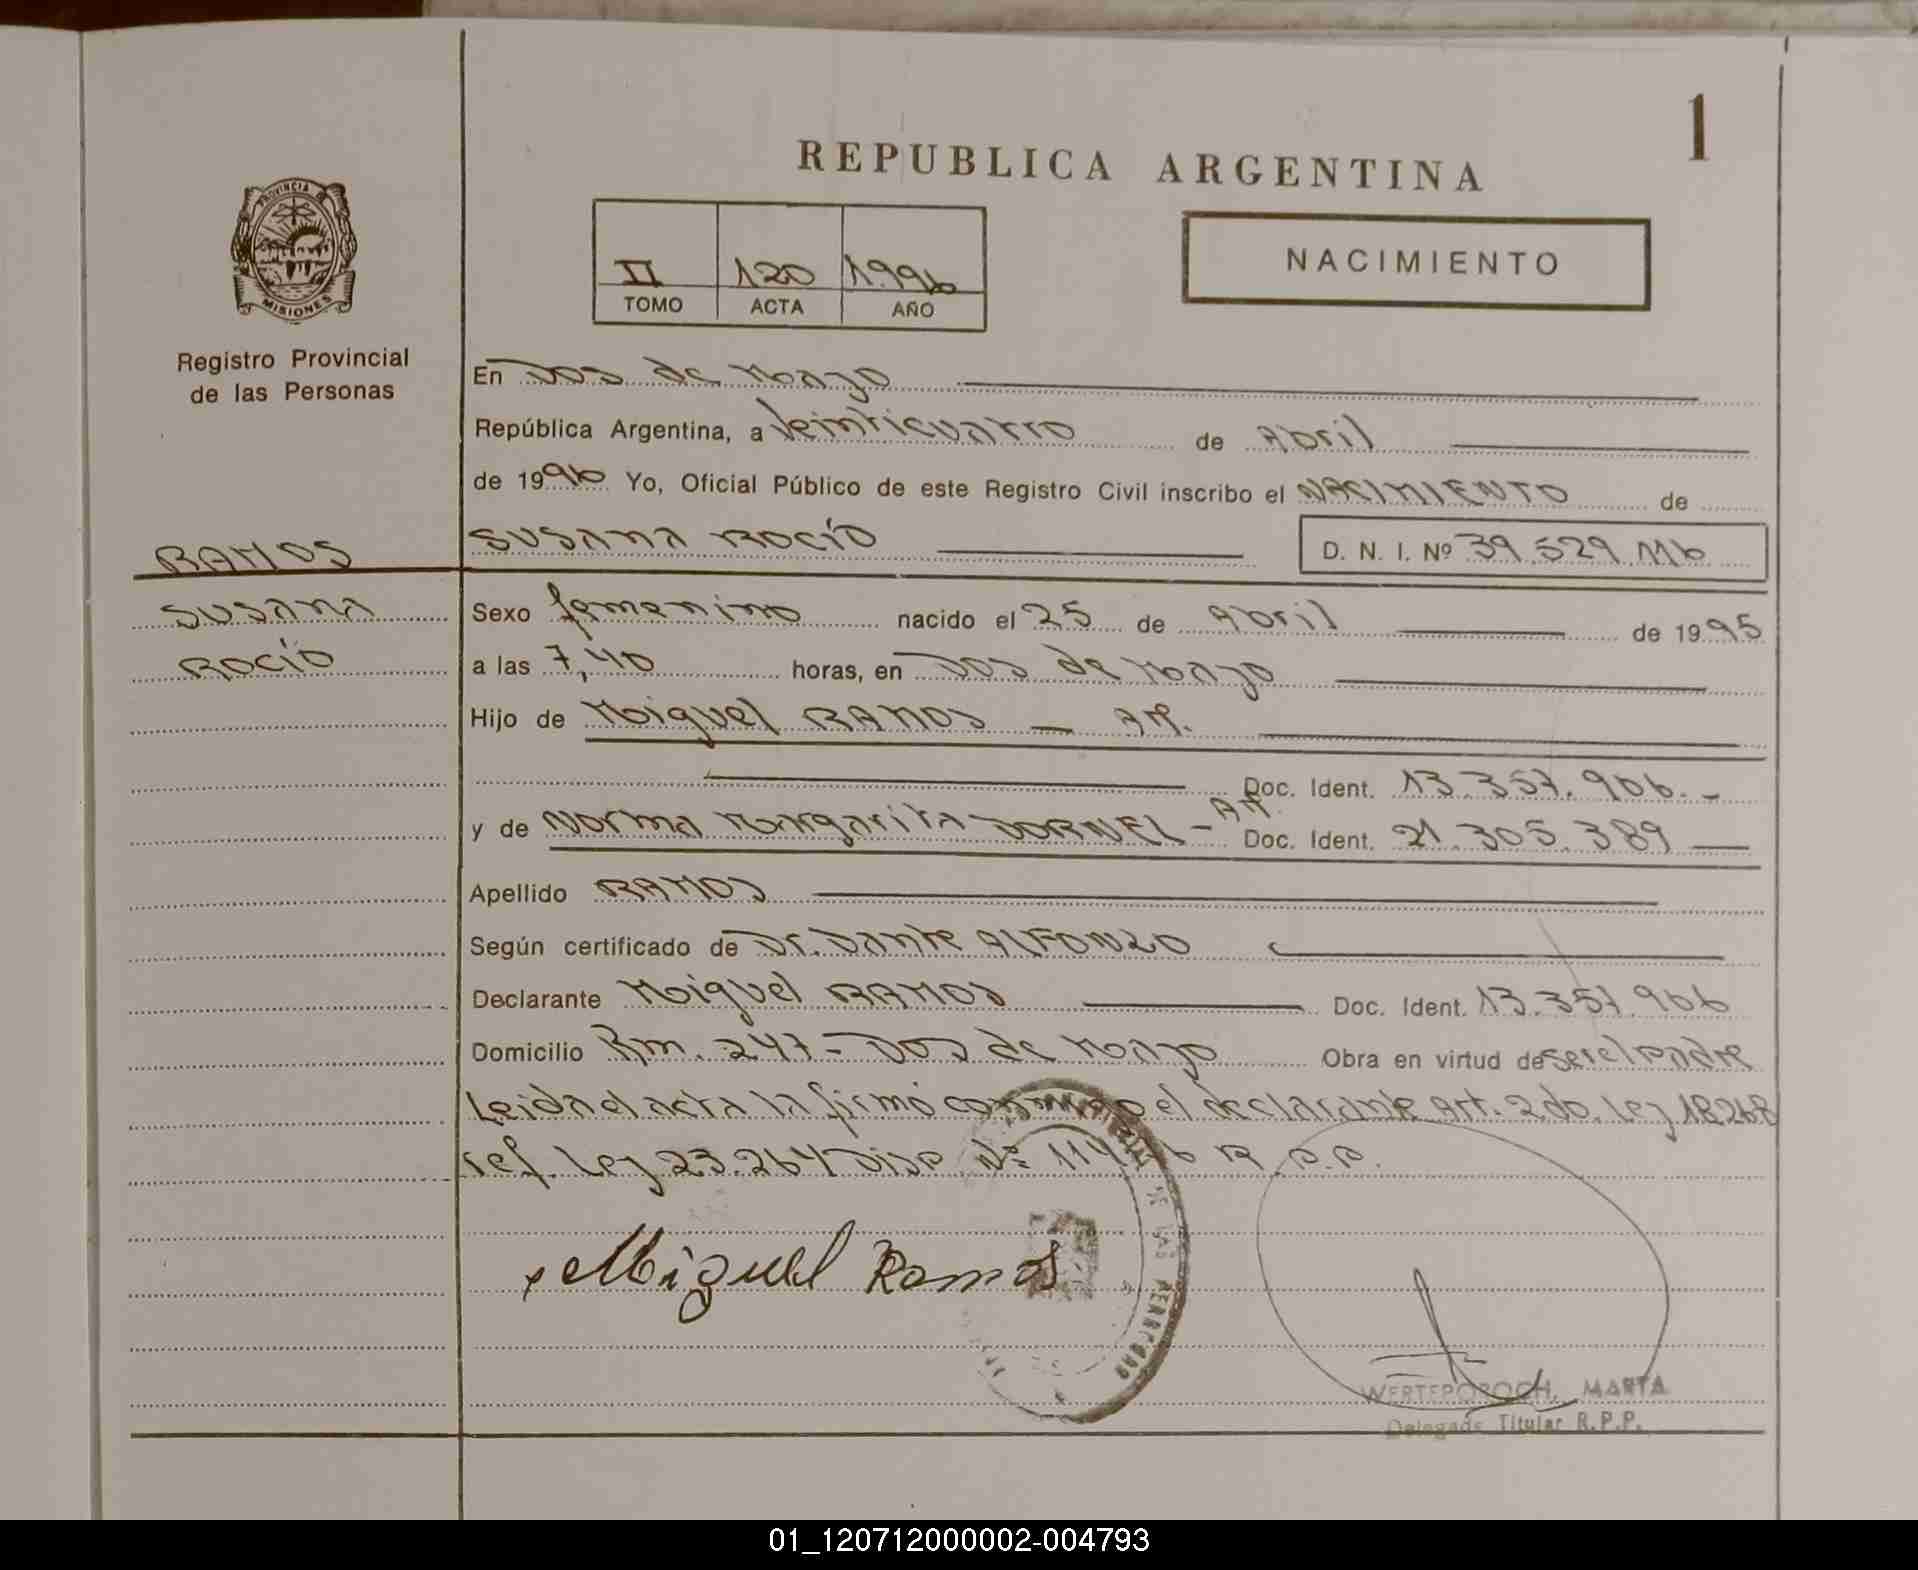 1
REPUBLICA ARGENTINA
PROVINCIA
MISIONES
Registro Provincial
de las Personas
II 120 1.996
TOMO ACTA AÑO
NACIMIENTO
En Dos de Mayo
República Argentina, a Veinticuatro de Abril
de 1996 Yo, Oficial Público de este Registro Civil inscribo el NACIMIENTO de
RAMOS
SUSANA ROCÍO D. N. I. Nº 39.529.116
SUSANA
ROCÍO
Sexo femenino nacido el 25 de Abril de 1995
a las 7,40 horas, en Dos de Mayo
Hijo de Miguel RAMOS — AR.
Doc. Ident. 13.357.906.-
y de Norma Margarita DORNEL - AR. Doc. Ident. 21.305.389
Apellido RAMOS
Según certificado de Dr. Dante ALFONZO
Declarante Miguel RAMOS Doc. Ident. 13.357.906
Domicilio Km. 247 - Dos de Mayo Obra en virtud de ser el padre
Leida el acta la firmó conmigo el declarante Art. 2do. Ley 18.268
ref. Ley 23.264 Disp. Nº R.P.P.
Miguel Ramos
DE LAS PERSONAS
WERTEPOROCH, MARTA
Delegada Titular R.P.P.
01_120712000002-004793